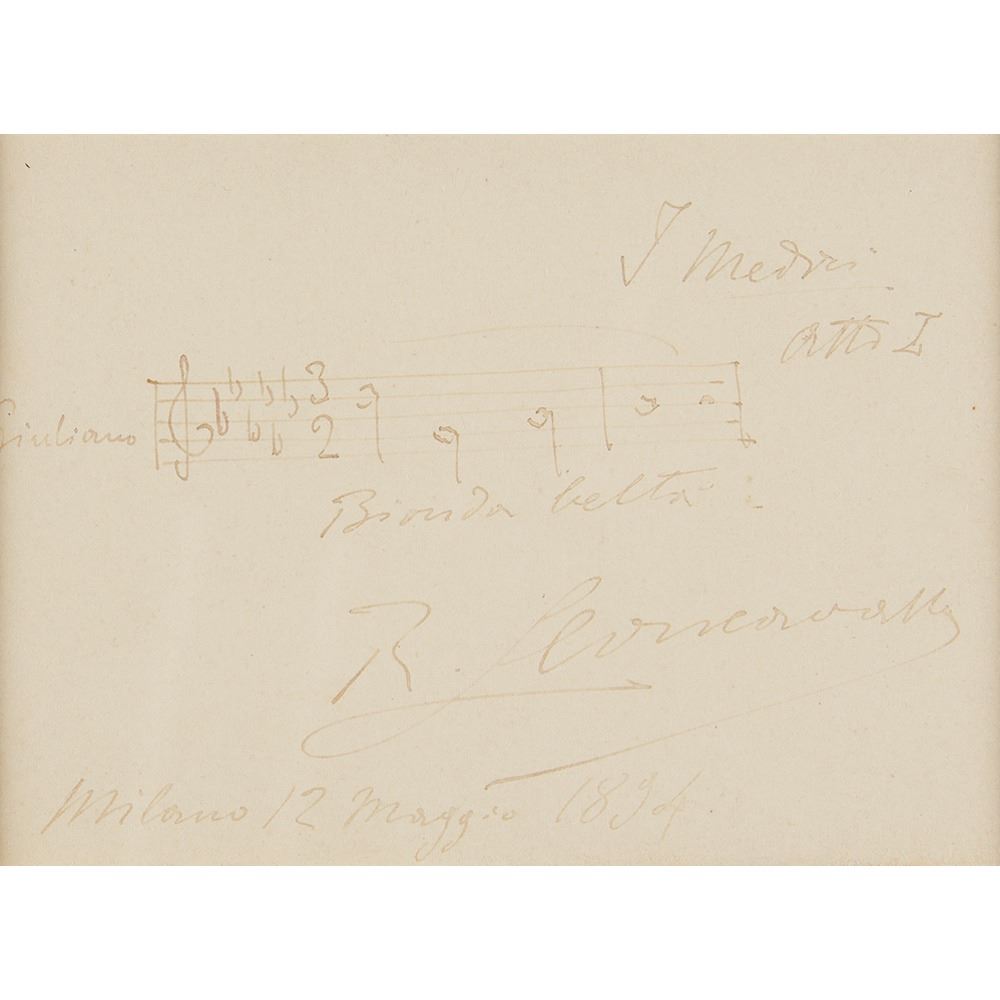 I Medici
Atto I
Giuliano
3
2
Bionda beltà
R. Leoncavallo
Milano 12 Maggio 1894